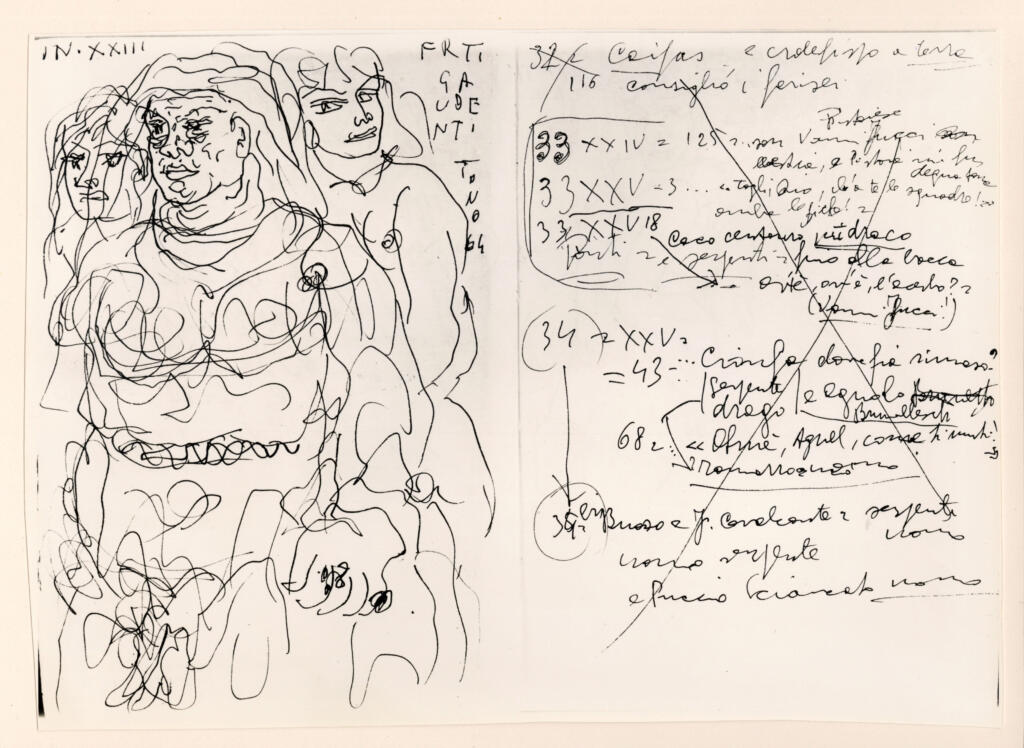 IN·XXIII
FRTI
GA
UDE
NTI
TONO
64
32 Caifas e crocefisso a terra
116 consigliò i farisei
33 XXIV = 125 = son Vanni Fucci
Pistoiese
bestia, e Pistoia mi fu
degna tana
33 XXV = 3 ... «Togli Dio, ch'a te le squadro!»
ambo le fiche! =
33 XXV 18
Caco centauro più draco
e serpenti = fino alla bocca
ov'è, ov'è, l'acerbo? =
(Vanni Fucci!)
34 = XXV =
= 43 - ... Cianfa donfia rimaso?
serpente
drago e Agnolo
Brunelleschi
68 = : « Ohmè, Agnel, come ti muti!
35 Buoso e F. Cavalcante = serpente
uomo
uomo serpente
e Puccio Sciancato uomo